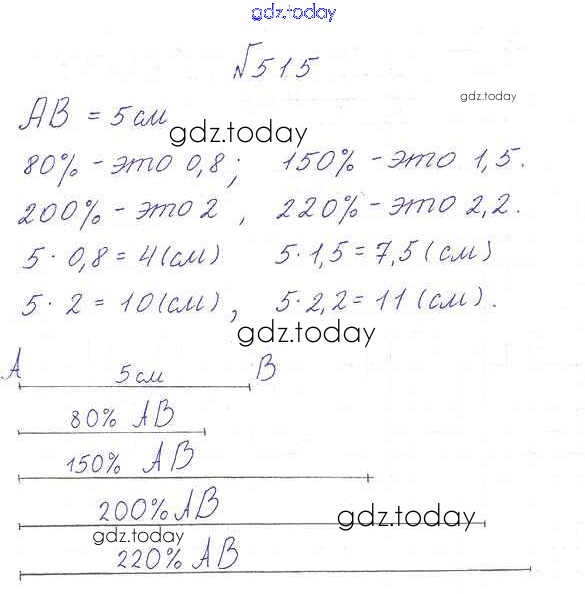 gdz.today
№515
gdz.today
AB = 5см
gdz.today
80% - это 0,8; 150% - это 1,5.
200% - это 2, 220% - это 2,2.
5 · 0,8 = 4(см) 5 · 1,5 = 7,5(см)
5 · 2 = 10(см), 5 · 2,2 = 11(см).
gdz.today
A 5см B
80% AB
150% AB
200% AB
gdz.today
gdz.today
220% AB